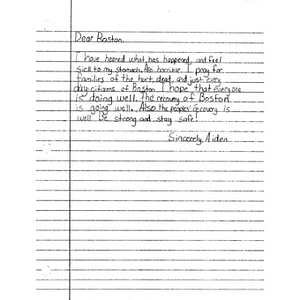 Dear Boston,
I have heared what has happened, and feel
sick to my stomach. horrible. I pray for
families of the hurt, dead, and just every
day citizens of Boston. I hope that everyone
is doing well. The recovery of Boston
is going well. Also the peoples' recovery is
well. Be strong and stay safe!
Sincerely, Aiden